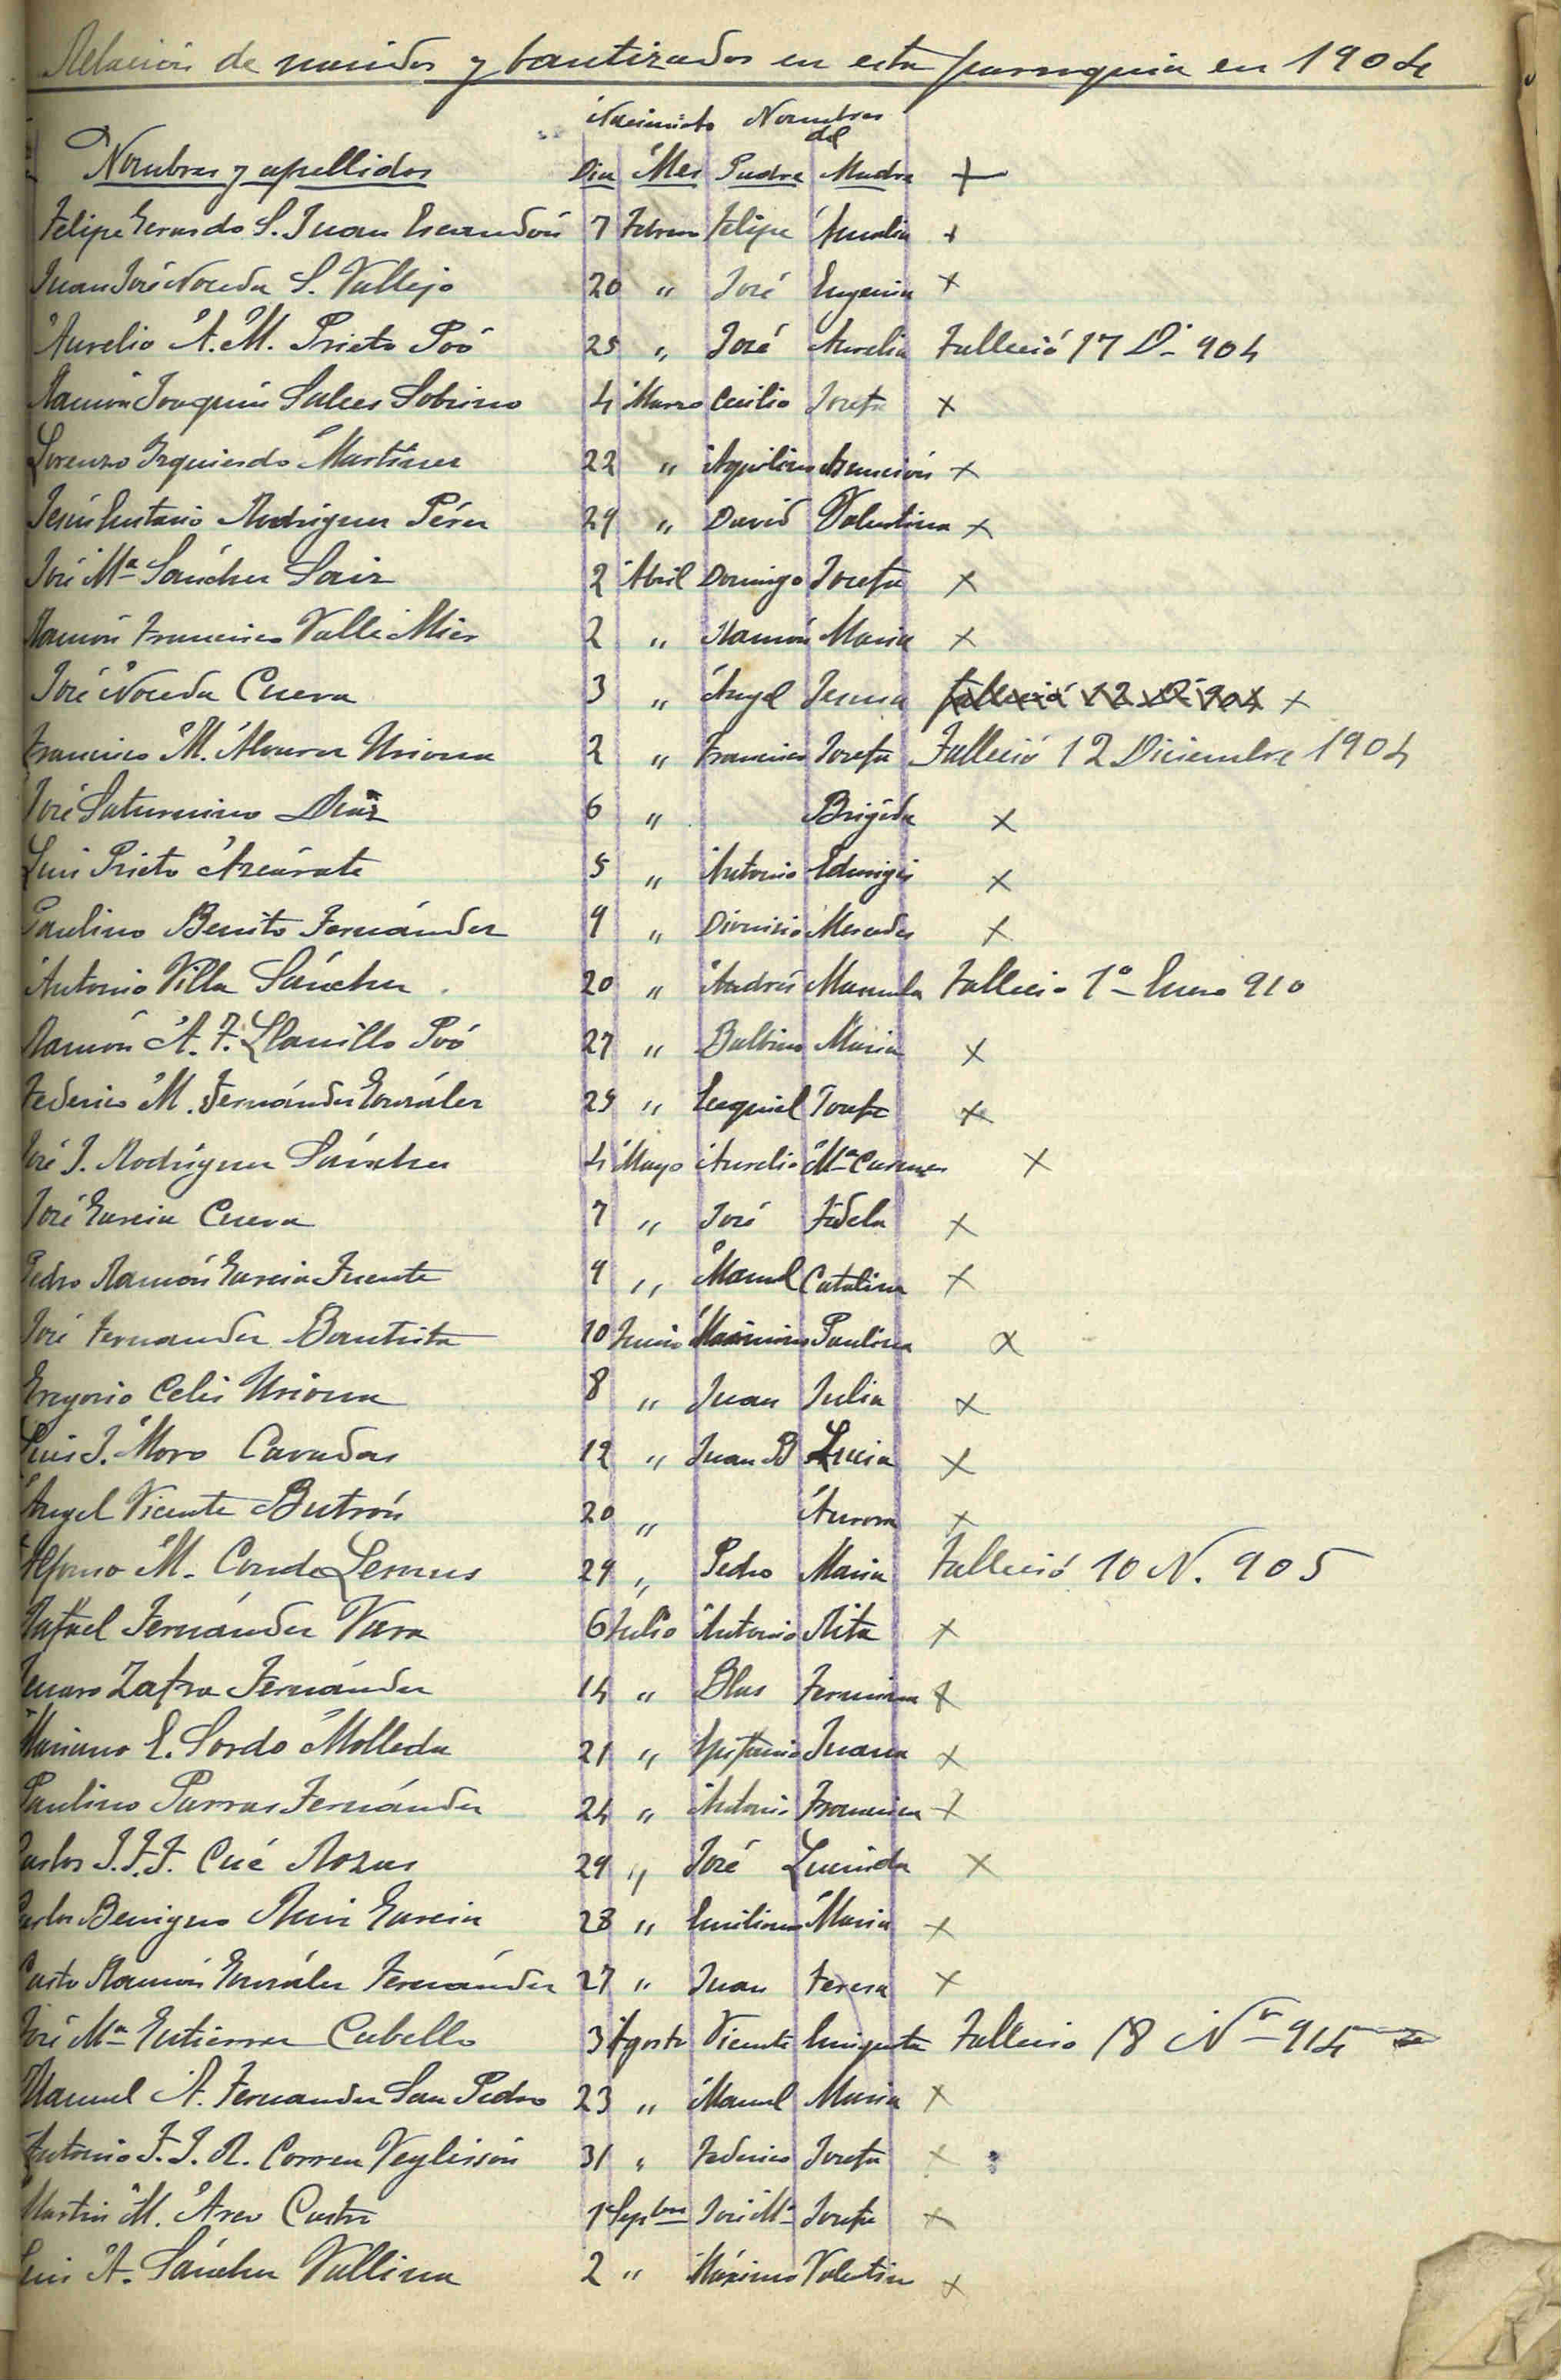 Relación de nacidos y bautizados en esta parroquia en 1904
Nacimiento Nombres
del
Nombres y apellidos Dia Mes Padre Madre +
Felipe Gerardo S. Juan Escandón 7 Febrero Felipe Amalia +
Juan José Noceda S. Vallejo 20 " José Eugenia x
Aurelio A. M. Prieto Poó 25 " José Aurelia Falleció 17 D- 904
Ramón Joaquín Salces Sobrino 4 Marzo Cecilio Josefa x
Lorenzo Izquierdo Martínez 22 " Aquilino Asunción x
Jesús Eustasio Rodríguez Pérez 29 " David Valentina x
José Mª Sánchez Sainz 2 Abril Domingo Josefa x
Ramón Francisco Valle Mier 2 " Ramón Maria x
José Noceda Cueva 3 " Ángel Jesusa Falleció 12 D 904 x
Francisco M. Álvarez Uriona 2 " Francisco Josefa Falleció 12 Diciembre 1904
José Saturnino Díaz 6 " Brígida x
Luis Prieto Azcárate 5 " Antonio Eduvigis x
Paulino Benito Fernández 9 " Dionisio Mercedes x
Antonio Villa Sánchez 20 " Andrés Manuela Falleció 1º Enero 910
Ramón A. F. Llanillo Poó 27 " Balbino Maria x
Federico M. Fernández González 25 " Ezequiel Josefa x
José J. Rodríguez Sánchez 4 Mayo Aurelio Mª Carmen x
José Garcia Cueva 7 " José Fidela x
Pedro Ramón Garcia Fuente 9 " Manuel Catalina x
José Fernandez Bautista 10 Junio Maximino Paulina x
Gregorio Celis Uriona 8 " Juan Julia x
Luis J. Moro Cavadas 12 " Juan B Lucia x
Ángel Vicente Butrón 20 " Aurora x
Alfonso M. Conde Lesmes 29 " Pedro Maria Falleció 10 N. 905
Rafael Fernández Vara 6 Julio Antonio Rita x
Genaro Zafra Fernández 14 " Blas Fermina x
Mariano E. Sordo Molleda 21 " Epifanio Juana x
Paulino Parras Fernández 24 " Antonio Francisca x
Carlos J.F.F. Cué Rozas 29 " José Lucinda x
Carlos Benigno Ruiz Garcia 28 " Emiliano Maria x
Casto Ramón González Fernández 27 " Juan Teresa x
José Mª Gutierrez Cabello 3 Agosto Vicente Falleció 18 Nº 914
Manuel A. Fernandez San Pedro 23 " Manuel Maria x
Antonio F. J. R. Correa Veglisón 31 " Federico Josefa x
Martin M. Arco Castro 1º Sepbre José Mª Josefa x
Luis A. Sánchez Vallina 2 " Máximo Valentina x